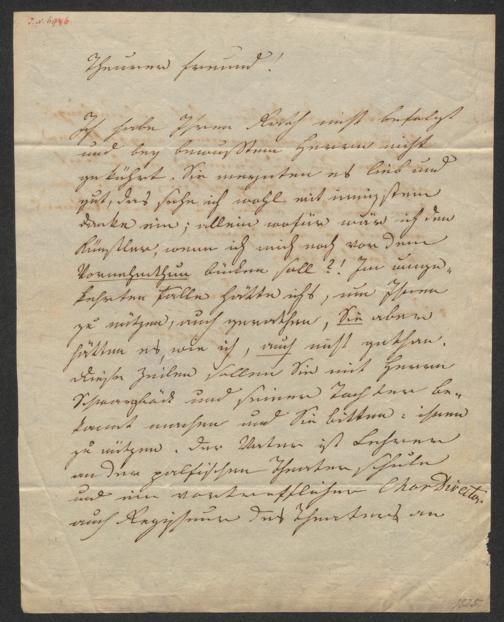 I. N. 6946
Theurer Freund!
Ich habe Ihren Rath nicht befolgt
und bey bewußtem Herrn nicht
geküht. Sie meynten es lieb und
gut, das sehe ich wohl mit innigstem
Danke ein; allein wofür wär ich denn
Künstler, wenn ich mich noch vor dem
Vornehmthun bücken soll?! Im umge-
kehrten Falle hätte ichs, um Ihnen
zu nützen, auch gerathen, Sie aber
hätten es, wie ich, auch nicht gethan.
Diese Zeilen sollen Sie mit Herrn
Schwarzböck und seiner Tochter be-
kannt machen und Sie bitten: ihnen
zu nützen. Der Vater ist Lehrer
an der palfischen Theaterschule
und ein vortrefflicher ChorDirector
auch Regisseur des Theaters an
1825